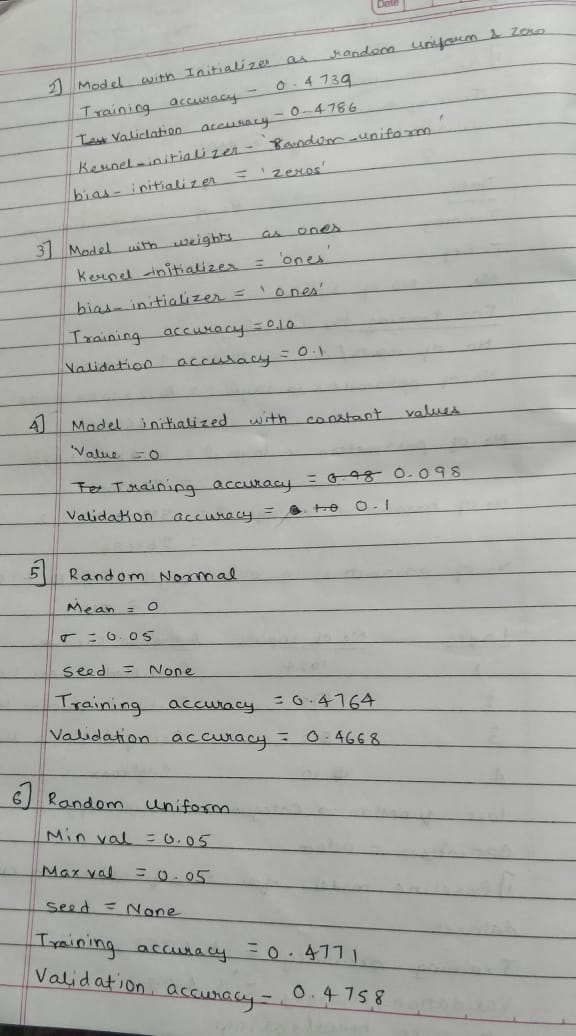 Date
2] Model with Initializer as random uniform & zero
Training accuracy - 0.4739
Test Validation accuracy - 0-4786
Kernel-initializer - 'Random-uniform'
bias-initializer = 'zeros'
3] Model with weights as ones
Kernel-initializer = 'ones'
bias-initializer = 'ones'
Training accuracy = 0.10
Validation accuracy = 0.1
4] Model initialized with constant values
Value = 0
Te Training accuracy = 0.98 0.098
Validation accuracy = 0.1
5] Random Normal
Mean = 0
σ = 0.05
seed = None
Training accuracy = 0.4764
Validation accuracy = 0.4668
6] Random uniform
Min val = 0.05
Max val = 0.05
seed = None
Training accuracy = 0.4771
Validation accuracy - 0.4758